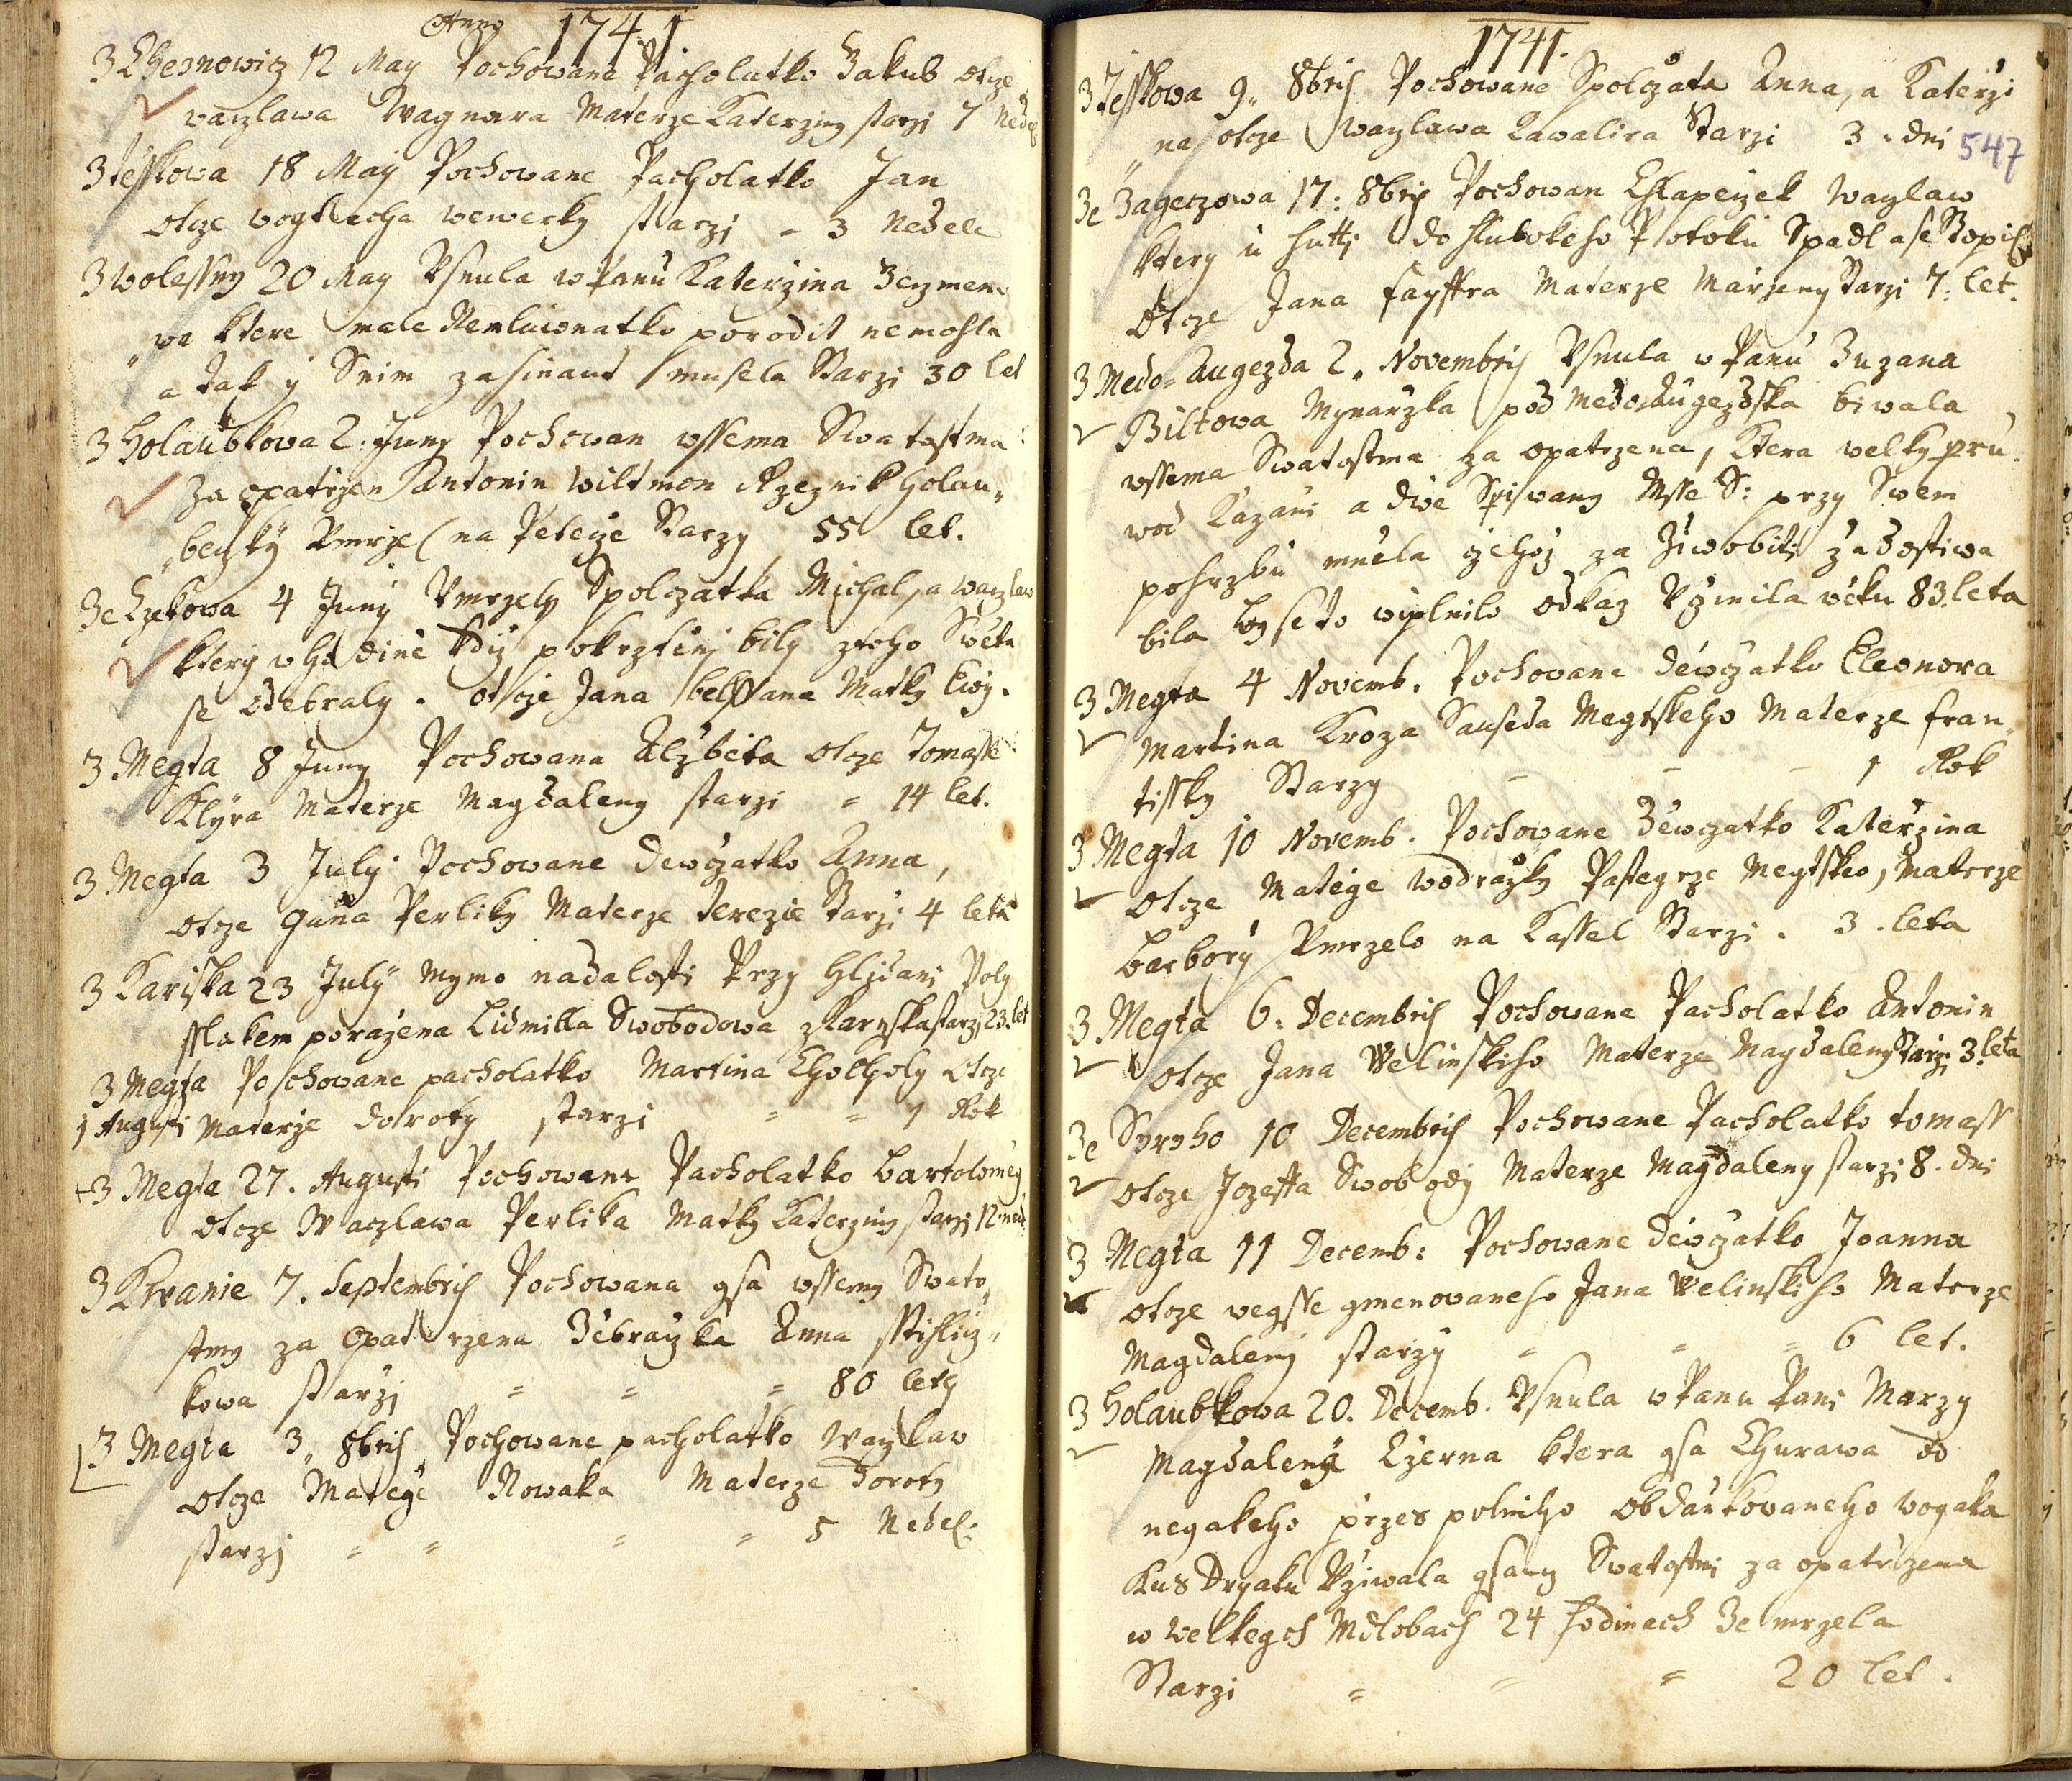 Anno 1741
Z Chesnowicz 12 May Pochowana Pacholatko Jakub otcze
vaczlawa Wagnera Materze Katerziny starzi 7 Neděl
Z Tesskowa 18 Maÿ Pochowane Pacholatko Jan
otcze vogtiecha wewerky starzi - 3 Nedele
Z Wolessny 20 May Vsnula w Panu Katerzina
ktere male Nemluwnatko porodit nemohla
a tak y Snim zahinaut musela Starzi 30 let
Z Holaubkowa 2. Juny Pochowan wssema Swatostma
Za opatrzen Antonin Wiltmon Rzeznik Holau„
„beczkÿ Umrzel na Peteczie Starzy 55 let.
Ze Czekowa 4 Junÿ Vmrzely Spolczatka Michal, a waczlaw
kterÿ w hodině kdÿž pokrztieni bily ztoho Swěta
se odebraly. otcze Jana belssana Matky Ewy.
Z Megta 8 Juny Pochowana Alzběta otcze Tomasse
Klÿra Materze Magdaleny starzi = 14 let.
Z Megta 3 Julÿ Pochowane děwczatko Anna,
otcze Jana Perliky Materze terezie Starzi 4 leta
Z Kariska 23 Julÿ Mymo nadalosti Przy hlidani Poly
sslakem porazena Lidmilla Swobodowa z Karyska starzi 23. let
Z Megta Pochowane pacholatko Martina Cholholy otcze
1 Augusti Materze doroty starzi = = 1 Rok
Z Megta 27. Augusti Pochowane Pacholatko Bartoloměg
otcze Waczlawa Perlika Matky Katerziny starzi 12 ned.
Z Kwanie 7. Septembris Pochowana gsa wssemy Swato„
stmy za opatrzena Žebraczka Anna
kowa starzi = = = 80 lety
Z Megta 3„ 8bris Pochowane pacholatko Waczlaw
otcze Matege Nowaka Materze doroty
starzi = = = = 5 Neděl.
1741.
Z Tesskowa 9„ 8bris Pochowane Spolczata Anna, a Katerzi
„na otcze waczlawa Kawalira Starzi 3. dni
547
Ze Zageczowa 17: 8bris Pochowan Chlapeczek Waczlaw
ktery u hutti do hlubokeho Potoku Spadl a se Vtopil
otcze Jana fayffra Materze Marzeny Starzi 7. let.
Z Medo= Augezda 2„ Novembris Vsnula w Panu Zuzana
Biltowa Mynarzka pod Medoaugezdska biwala
wssema Swatostma za opatrzena, ktera welky pru„
wod Kazani a dwe Spiwany Msse S: przy Swem
pohrzbu měla gehoz za Ziwobiti zadostiwa
bila by se to wiplnilo odkaz Vczinila věku 83. leta
Z Megta 4 Novemb. Pochowane děwczatko Eleonora
Martina Kroza Sauseda Megtskeho Materze fran„
tissky Starzy - - - 1 Rok
Z Megta 10 Novemb. Pochowane děwczatko Katerzina
otcze Matěge Wodrazky Pasteyrze Megtskeo, Materze
Barborÿ Vmrzelo na Kassel Starzi. 3. leta
Z Megta 6. Decembris Pochowane Pacholatko Antonin
otcze Jana Welinskiho Materze Magdaleny Starzi 3. leta
Ze Syrpho 10 Decembris Pochowane Pacholatko tomass
otcze Jozeffa Swobody Materze Magdaleny starzi 8. dni
Z Megta 11 Decemb: Pochowane děwczatko Joanna
otcze vegsse gmenovaneho Jana Welinskiho Materze
Magdaleny starzy = = = 6 let.
Z Holaubkowa 20. Decemb. Vsnula w Panu Pani Marzy
Magdalena Czerna ktera gsa Churawa od
negakeho przespolniho Obdarkovaneho vogaka
Kus Dryaku Vziwala gsaucz Swatostmi za opatrzena
w velkegch Mdlobach 24 hodinach Ze mrzela
Starzi = = = 20 let.